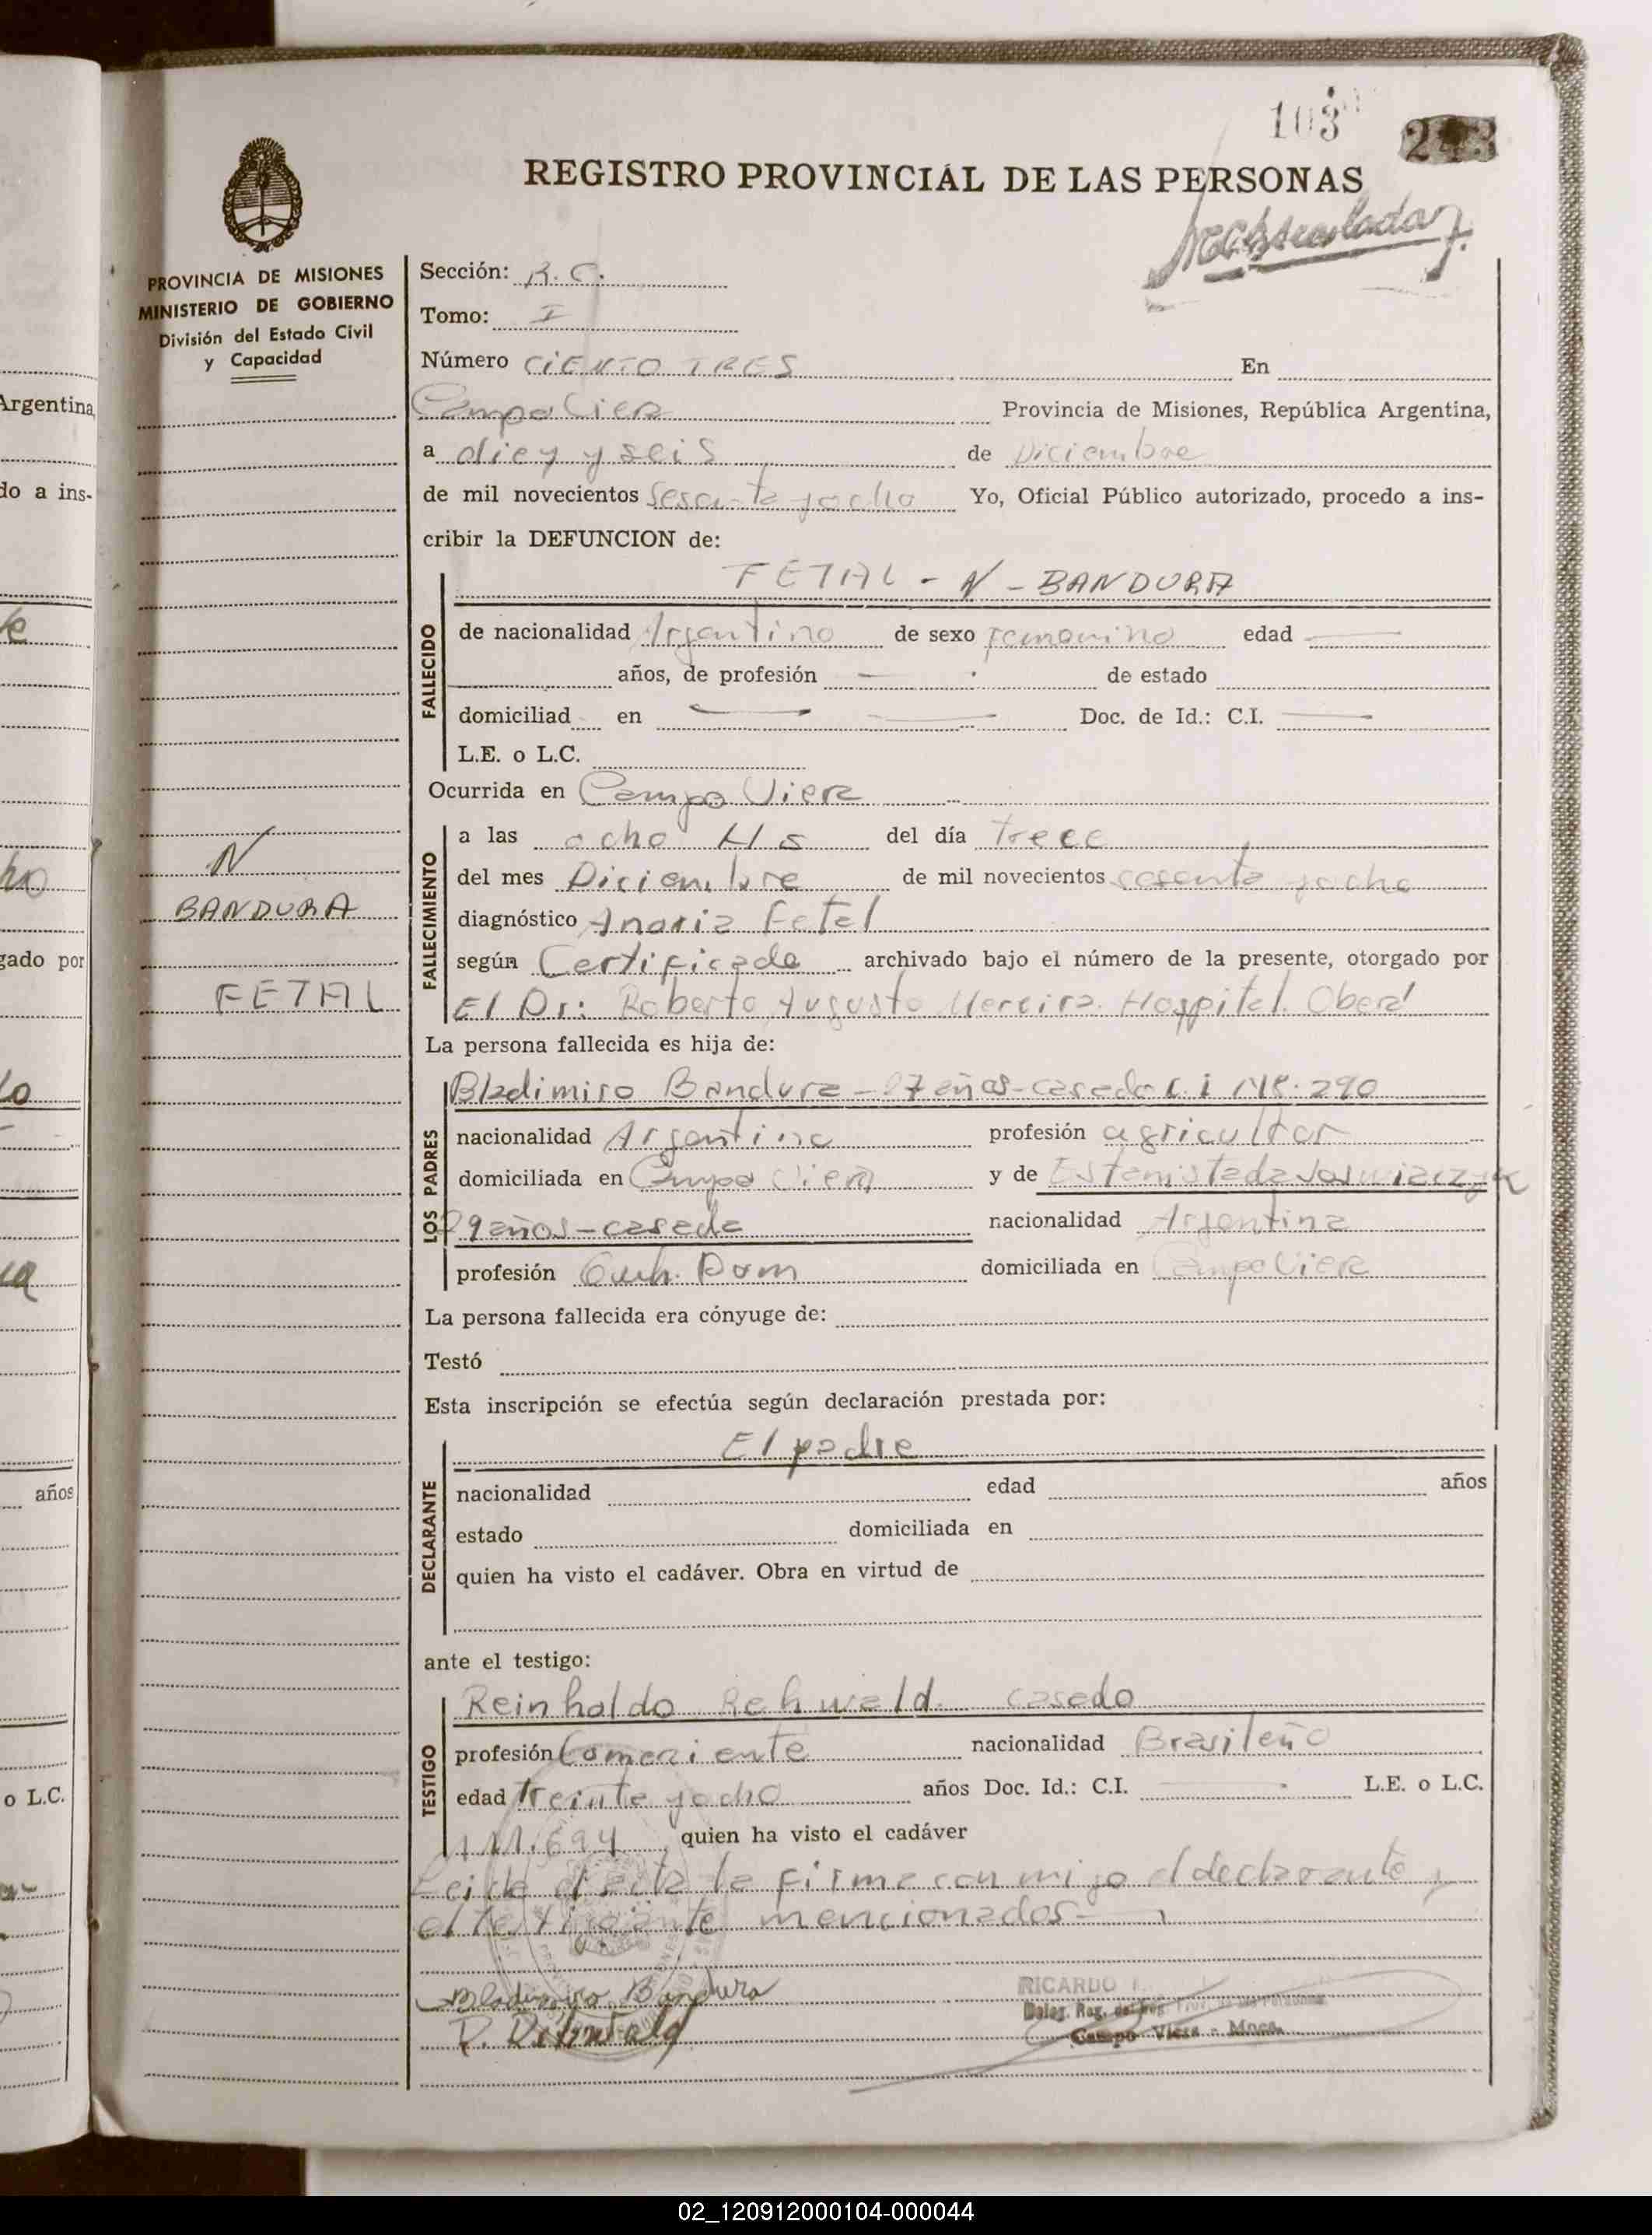 103
243
REGISTRO PROVINCIAL DE LAS PERSONAS
PROVINCIA DE MISIONES
MINISTERIO DE GOBIERNO
División del Estado Civil
y Capacidad
Sección: R. C.
Tomo: I
Número CIENTO TRES En
Campo Viera Provincia de Misiones, República Argentina,
a diez y seis de Diciembre
de mil novecientos sesenta y ocho Yo, Oficial Público autorizado, procedo a ins-
cribir la DEFUNCION de:
FETAL - N - BANDURA
FALLECIDO
de nacionalidad Argentino de sexo femenino edad
años, de profesión de estado
domiciliad en Doc. de Id.: C.I.
L.E. o L.C.
Ocurrida en Campo Viera
FALLECIMIENTO
a las ocho Hs del día trece
del mes Diciembre de mil novecientos sesenta y ocho
N
BANDURA
FETAL
diagnóstico Anoxia Fetal
según Certificado archivado bajo el número de la presente, otorgado por
El Dr: Roberto Augusto Hospital Oberá
La persona fallecida es hija de:
LOS PADRES
Bladimiro Bandura - 27 años - casado C. I. 290
nacionalidad Argentino profesión agricultor
domiciliada en Campo Viera y de
29 años - casada nacionalidad Argentina
profesión Dom domiciliada en Campo Viera
La persona fallecida era cónyuge de:
Testó
Esta inscripción se efectúa según declaración prestada por:
El padre
DECLARANTE
nacionalidad edad años
estado domiciliada en
quien ha visto el cadáver. Obra en virtud de
ante el testigo:
TESTIGO
Reinholdo Rehwald casado
profesión Comerciente nacionalidad Brasileño
edad treinte y ocho años Doc. Id.: C.I. L.E. o L.C.
694 quien ha visto el cadáver
Leida el acta la firma con migo el declarante y
el mencionados
Bladimiro Bandura
R. Rehwald
RICARDO
Deleg. Reg. del Reg. Prov. de las Personas
Campo Viera - Mnes.
Argentina,
do a ins-
gado por
años
o L.C.
02_120912000104-000044